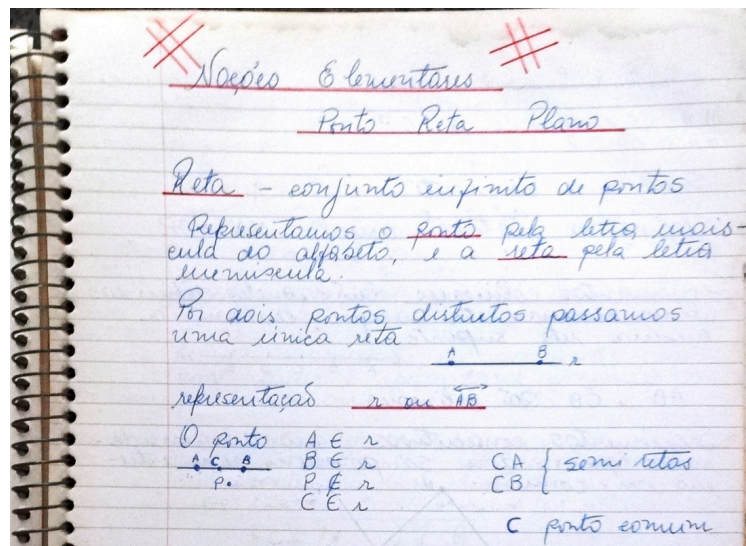 Noções Elementares
Ponto Reta Plano
Reta - conjunto infinito de pontos
Representamos o ponto pela letra maiús-
cula do alfabeto, e a reta pela letra
menuscula.
Por dois pontos distintos passamos
uma única reta
A B r
representação r ou AB
O ponto A ∈ r
A C B B ∈ r CA { semi retas
P. P ∉ r CB
C ∈ r
C ponto comum